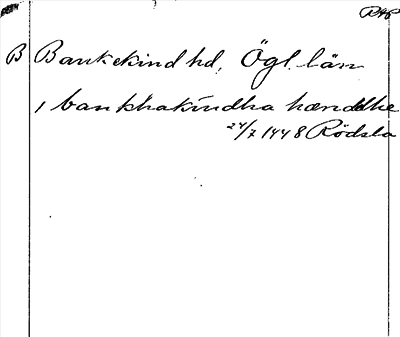 RAP
B Bankekind hd, Ögl. län
i bankhakindha hændhe
24/7 1448 Rödsla